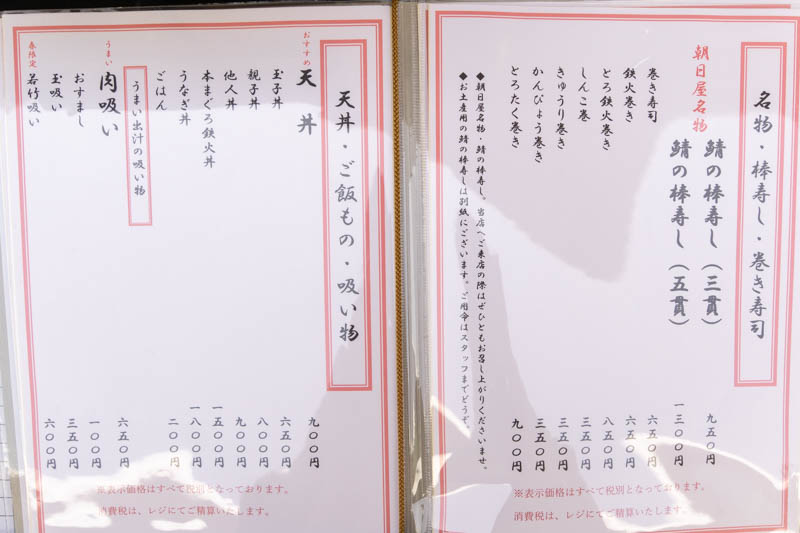 名物・棒寿し・巻き寿司
朝日屋名物
鯖の棒寿し（三貫） 九五〇円
鯖の棒寿し（五貫） 一三〇〇円
巻き寿司 六五〇円
鉄火巻き 六五〇円
とろ鉄火巻き 八五〇円
しんこ巻 三五〇円
きゅうり巻き 三五〇円
かんぴょう巻き 三五〇円
とろたく巻き 九〇〇円
◆朝日屋名物・鯖の棒寿し。当店へご来店の際はぜひともお召し上がりくださいませ。
◆お土産用の鯖の棒寿しは別紙にございます。ご用命はスタッフまでどうぞ。
※表示価格はすべて税別となっております。
消費税は、レジにてご精算いたします。
天丼・ご飯もの・吸い物
おすすめ
天丼 九〇〇円
玉子丼 六五〇円
親子丼 八〇〇円
他人丼 九〇〇円
本まぐろ鉄火丼 一五〇〇円
うなぎ丼 一八〇〇円
ごはん 二〇〇円
うまい出汁の吸い物
うまい
肉吸い 六五〇円
おすまし 一〇〇円
玉吸い 三五〇円
春限定
若竹吸い 六〇〇円
※表示価格はすべて税別となっております。
消費税は、レジにてご精算いたします。